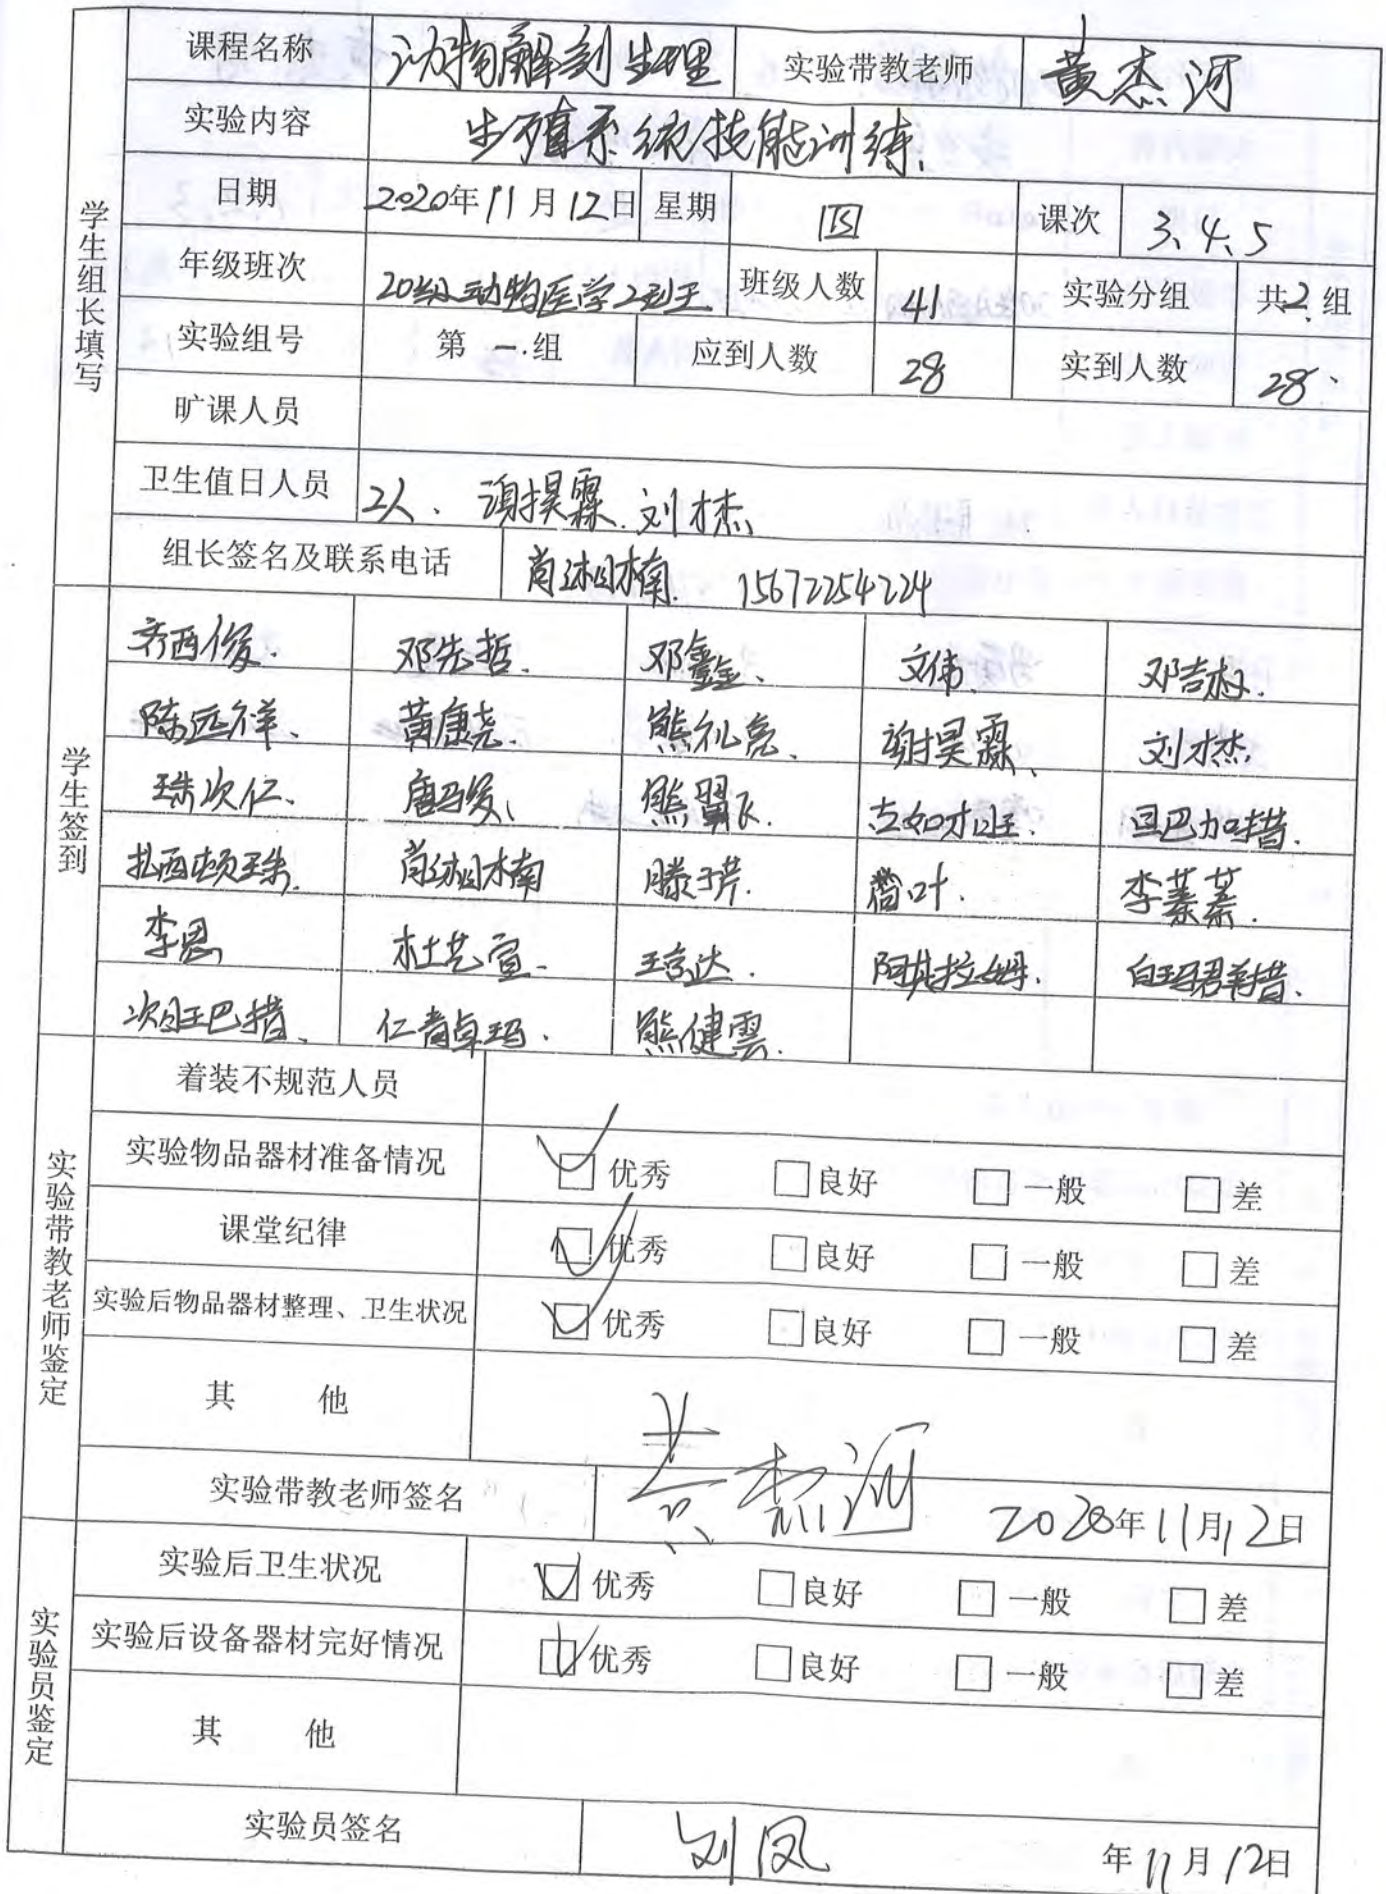 课程名称 动物解剖生理 实验带教老师 黄杰河
实验内容 生殖系统技能训练.
学生组长填写
日期 2020年11月12日 星期 四 课次 3、4、5
年级班次 20级动物医学2班 班级人数 41 实验分组 共2组
实验组号 第一.组 应到人数 28 实到人数 28、
旷课人员
卫生值日人员 2人、谢昊霖.刘才杰
组长签名及联系电话 肖湘楠. 15672254224
学生签到
齐西俊. 邓先哲. 邓鑫、 文伟. 邓吉
陈远祥、 黄康尧. 熊礼亮、 谢昊霖、 刘才杰.
珠次仁、 唐 熊翼飞. 旦巴加措.
扎西顿珠. 肖湘楠 滕子芹. 叶. 李蓁蓁.
李恩 杜艺宣. 王 达. 阿其拉姆. 白玛君措.
次旺巴措、 仁青卓玛. 熊健雲.
实验带教老师鉴定
着装不规范人员
实验物品器材准备情况 ☑优秀 □良好 □一般 □差
课堂纪律 ☑优秀 □良好 □一般 □差
实验后物品器材整理、卫生状况 ☑优秀 □良好 □一般 □差
其 他
实验带教老师签名 黄杰河 2020年11月12日
实验员鉴定
实验后卫生状况 ☑优秀 □良好 □一般 □差
实验后设备器材完好情况 ☑优秀 □良好 □一般 □差
其 他
实验员签名 刘凤 年11月12日